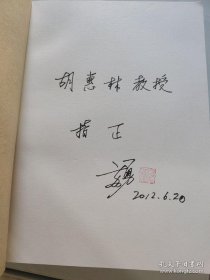 胡惠林教授
指正
2012.6.20